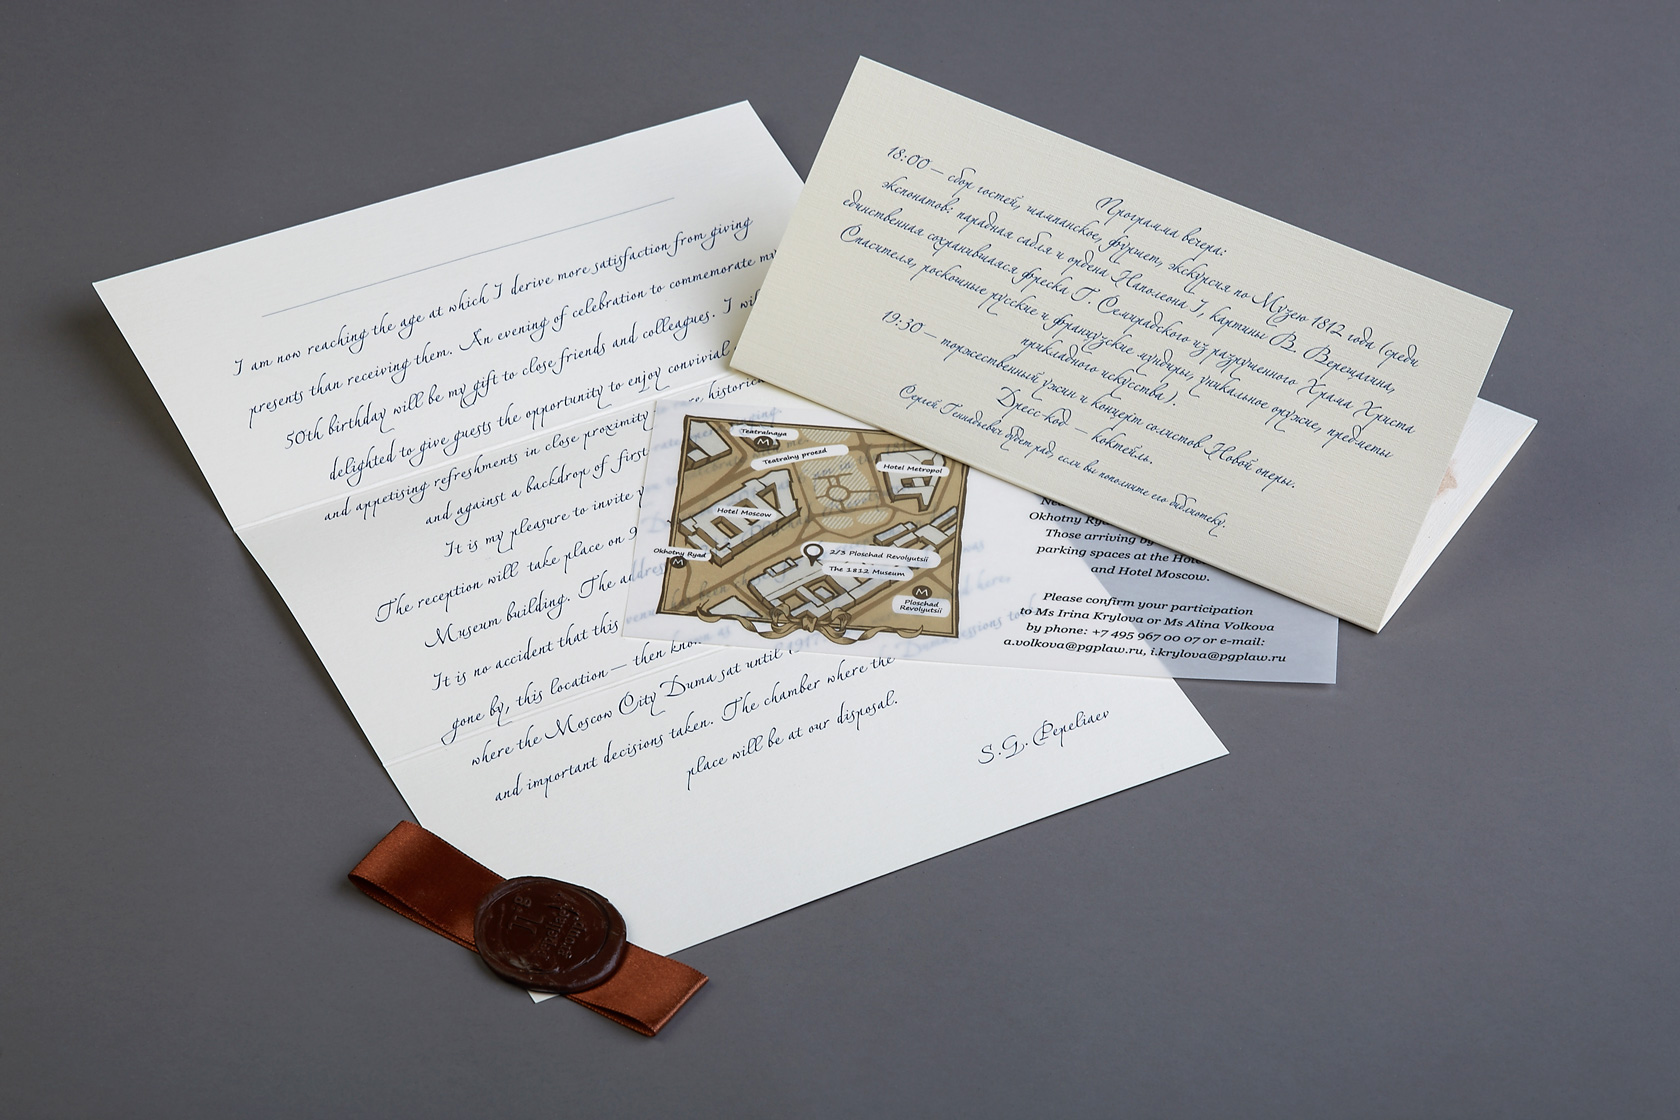 I am now reaching the age at which I derive more satisfaction from giving
presents than receiving them. An evening of celebration to commemorate my
50th birthday will be my gift to close friends and colleagues. I will
delighted to give guests the opportunity to enjoy convivial
and appetising refreshments in close proximity historical
and against a backdrop of first
It is my pleasure to invite
The reception will take place on 9
Museum building. The address
It is no accident that this venue
gone by, this location — then known as
where the Moscow City Duma sat until 1917
and important decisions taken. The chamber where the Duma sessions
place will be at our disposal.
S.G. Pepeliaev
Программа вечера:
18:00 — сбор гостей, шампанское, фуршет, экскурсия по Музею 1812 года (среди
экспонатов: парадная сабля и ордена Наполеона I, картины В. Верещагина,
единственная сохранившаяся фреска Г. Семирадского из разрушенного Храма Христа
Спасителя, роскошные русские и французские мундиры, уникальное оружие, предметы
прикладного искусства).
19:30 — торжественный ужин и концерт солистов Новой оперы.
Дресс-код — коктейль.
Сергей Геннадьевич будет рад, если вы пополните его библиотеку.
Teatralnaya
M
Teatralny proezd
Hotel Metropol
Hotel Moscow
Okhotny Ryad
M
2/3 Ploschad Revolyutsii
The 1812 Museum
M
Ploschad
Revolyutsii
Okhotny Rya
Those arriving by
parking spaces at the Hote
and Hotel Moscow.
Please confirm your participation
to Ms Irina Krylova or Ms Alina Volkova
by phone: +7 495 967 00 07 or e-mail:
a.volkova@pgplaw.ru, i.krylova@pgplaw.ru
pepeliaev
group